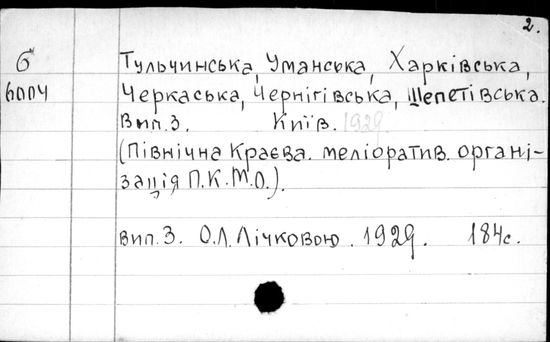 2.
б Тульчинська, Уманська, Харківська,
6004 Черкаська, Чернігівська, Шепетівська.
Вип.3. Київ. 1929.
(Північна Краєва. меліоратив. органі-
зація П.К.М.О.).
вип.3. О.Л.Лічковою. 1929. 184с.